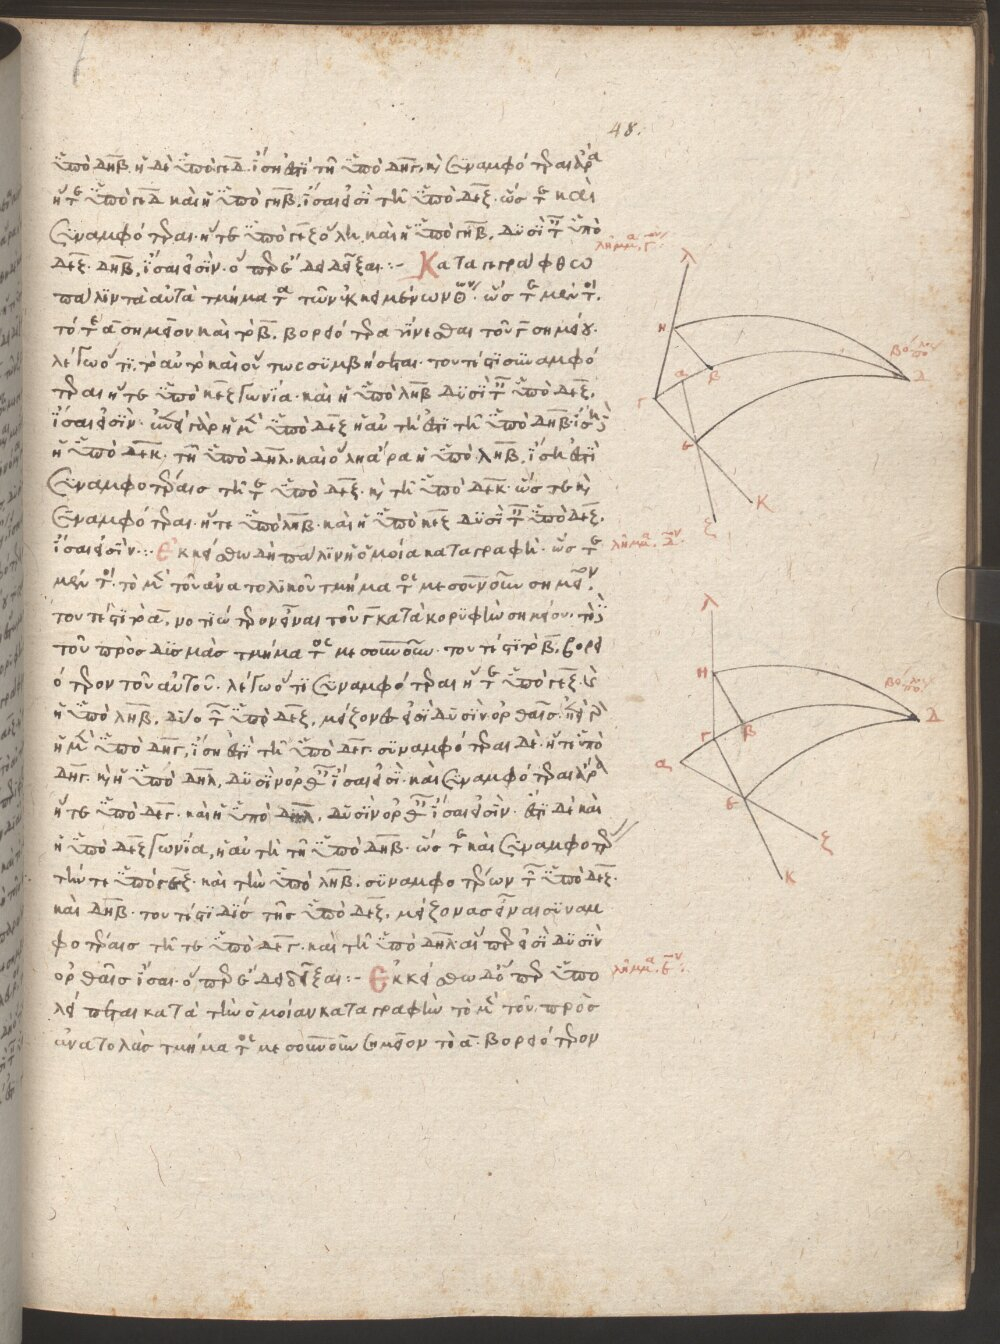 48.
ὑπὸ ΔΗΒ. ἡ δὲ ὑπὸ ΓΕΔ ἴση ἐστὶ τῇ ὑπὸ ΔΗΓ, καὶ συναμφότεραι ἄρα
ἥ τε ὑπὸ ΓΕΔ καὶ ἡ ὑπὸ ΓΗΒ, ἴσαι εἰσὶ τῇ ὑπὸ ΔΕΞ. ὥστε καὶ
συναμφότεραι. ἥ τε ὑπὸ ΓΕΞ ὅλη, καὶ ἡ ὑπὸ ΓΗΒ, δυσὶ τῶν ὑπὸ
ΔΕΞ. ΔΗΒ, ἴσαι εἰσίν. ὅπερ ἔδει δεῖξαι :- Καταγεγράφθω
πάλιν τὰ αὐτὰ τμήματα τῶν ἐκκειμένων ὥστε μέντοι
τό τε Α σημεῖον καὶ τὸ Β. βορειότερα γίνεσθαι τοῦ Γ σημείου.
λέγω ὅτι, τὸ αὐτὸ καὶ οὕτως συμβήσεται. τουτέστι συναμφό
τεραι ἥ τε ὑπὸ ΚΕΞ γωνία. καὶ ἡ ὑπὸ ΛΗΒ δυσὶ τῶν ὑπὸ ΔΕΞ,
ἴσαι εἰσίν. ἐπεὶ γὰρ ἡ μὲν ὑπὸ ΔΕΞ ἡ αὐτή ἐστι τῇ ὑπὸ ΔΗΒ. ἴση καὶ
ἡ ὑπὸ ΔΕΚ. τῇ ὑπὸ ΔΗΛ. καὶ ὅλη ἄρα ἡ ὑπὸ ΛΗΒ, ἴση ἐστὶ
συναμφοτέραις τῇ τε ὑπὸ ΔΕΞ. καὶ τῇ ὑπὸ ΔΕΚ. ὥστε καὶ
συναμφότεραι. ἥ τε ὑπὸ ΛΗΒ. καὶ ἡ ὑπὸ ΚΕΞ δυσὶ τῶν ὑπὸ ΔΕΞ.
ἴσαι εἰσίν... Ἐκκείσθω δὴ πάλιν ἡ ὁμοία καταγραφή. ὥστε
μέντοι. τὸ μὲν τοῦ ἀνατολικοῦ τμήματος μεσουρανοῦν σημεῖον,
τουτέστι τὸ Α, νοτιώτερον εἶναι τοῦ Γ κατὰ κορυφὴν σημείου. τὸ δὲ
τοῦ πρὸς δυσμὰς τμήματος μεσουρανοῦν. τουτέστι τὸ Β, βορει
ότερον τοῦ αὐτοῦ. λέγω ὅτι συναμφότεραι ἥ τε ὑπὸ ΓΕΞ καὶ
ἡ ὑπὸ ΛΗΒ, δύο τῶν ὑπὸ ΔΕΞ, μείζονές εἰσι δυσὶν ὀρθαῖς. ἐπεὶ γὰρ
ἡ μὲν ὑπὸ ΔΗΓ, ἴση ἐστὶ τῇ ὑπὸ ΔΕΓ. συναμφότεραι δὲ. ἥ τε ὑπὸ
ΔΗΓ. καὶ ἡ ὑπὸ ΔΗΛ, δυσὶν ὀρθαῖς ἴσαι εἰσὶ. καὶ συναμφότεραι ἄρα
ἥ τε ὑπὸ ΔΕΓ. καὶ ἡ ὑπὸ ΔΗΛ, δυσὶν ὀρθαῖς ἴσαι εἰσίν. ἔστι δὲ καὶ
ἡ ὑπὸ ΔΕΞ γωνία, ἡ αὐτὴ τῇ ὑπὸ ΔΗΒ. ὥστε καὶ συναμφοτέρ
τήν τε ὑπὸ ΓΕΞ. καὶ τὴν ὑπὸ ΛΗΒ. συναμφοτέρων τῶν ὑπὸ ΔΕΞ.
καὶ ΔΗΒ. τουτέστι δὶς τῆς ὑπὸ ΔΕΞ, μείζονας εἶναι συναμ
φοτέραις τῇ τε ὑπὸ ΔΕΓ. καὶ τῇ ὑπὸ ΔΗΛ αἵπερ εἰσὶ δυσὶν
ὀρθαῖς ἴσαι. ὅπερ ἔδει δεῖξαι :- Ἐκκείσθω δʼ ὅπερ ὑπο
λείπεται κατὰ τὴν ὁμοίαν καταγραφὴν τὸ μὲν τοῦ πρὸς
ἀνατολὰς τμήματος μεσουρανοῦν σημεῖον τὸ Α. βορειότερον
λῆμμα Γον
Λ
Η
Α
Β
Γ
Ε
Δ
Κ
Ξ
λῆμμα Δον
Λ
Η
Β
Γ
Α
Ε
Δ
Ξ
Κ
λῆμμα Εον